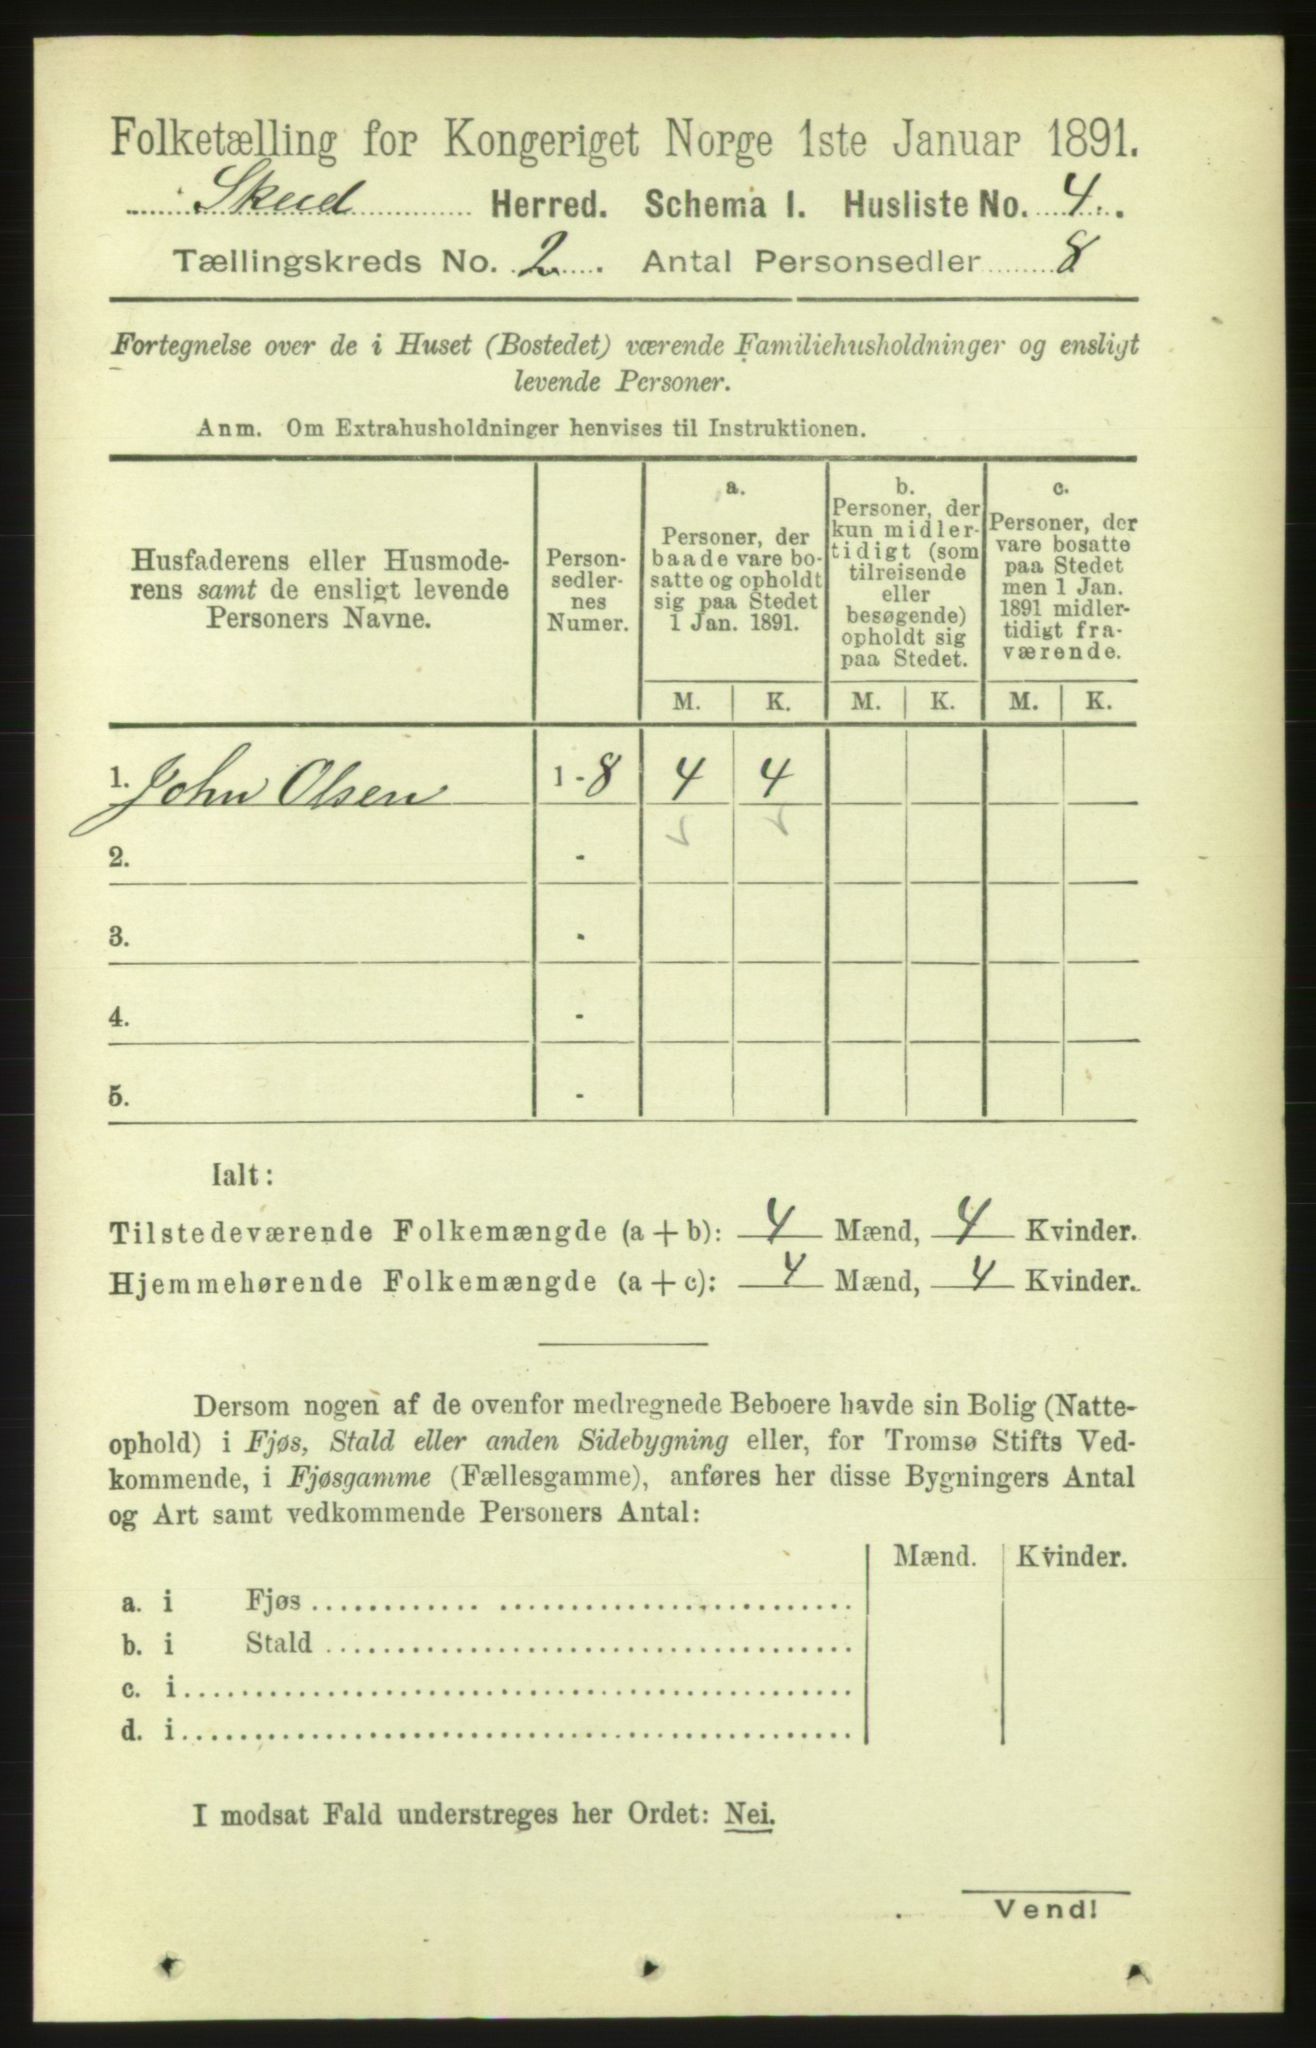 Folketælling for Kongeriget Norge 1ste Januar 1891.
Skud Herred. Schema I. Husliste No. 4.
Tællingskreds No. 2. Antal Personsedler 8
Fortegnelse over de i Huset (Bostedet) værende Familiehusholdninger og ensligt
levende Personer.
Anm. Om Extrahusholdninger henvises til Instruktionen.
Husfaderens eller Husmode-
rens samt de ensligt levende
Personers Navne.
Person-
sedler-
nes
Numer.
a.
Personer, der
baade vare bo-
satte og opholdt
sig paa Stedet
1 Jan. 1891.
b.
Personer, der
kun midler-
tidigt (som
tilreisende
eller
besøgende)
opholdt sig
paa Stedet.
c.
Personer, der
vare bosatte
paa Stedet
men 1 Jan.
1891 midler-
tidigt fra-
værende.
M. K. M. K. M. K.
1. John Olsen 1 - 8 4 4
2. -
3. -
4. -
5. -
Ialt:
Tilstedeværende Folkemængde (a + b): 4 Mænd, 4 Kvinder.
Hjemmehørende Folkemængde (a + c): 4 Mænd, 4 Kvinder.
Dersom nogen af de ovenfor medregnede Beboere havde sin Bolig (Natte-
ophold) i Fjøs, Stald eller anden Sidebygning eller, for Tromsø Stifts Ved-
kommende, i Fjøsgamme (Fællesgamme), anføres her disse Bygningers Antal
og Art samt vedkommende Personers Antal:
Mænd. Kvinder.
a. i Fjøs
b. i Stald
c. i
d. i
I modsat Fald understreges her Ordet: Nei.
Vend!